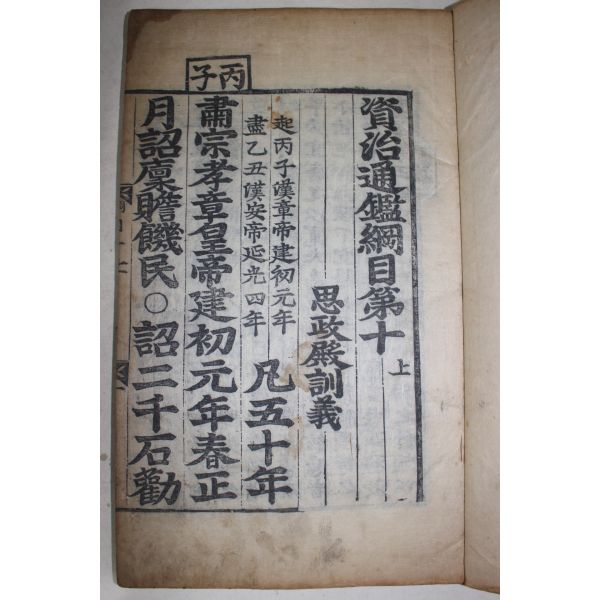 資治通鑑綱目第十上
思政殿訓義
起丙子漢章帝建初元年
盡乙丑漢安帝延光四年
凡五十年
丙子
肅宗孝章皇帝建初元年春正
月詔廩贍饑民○詔二千石勸